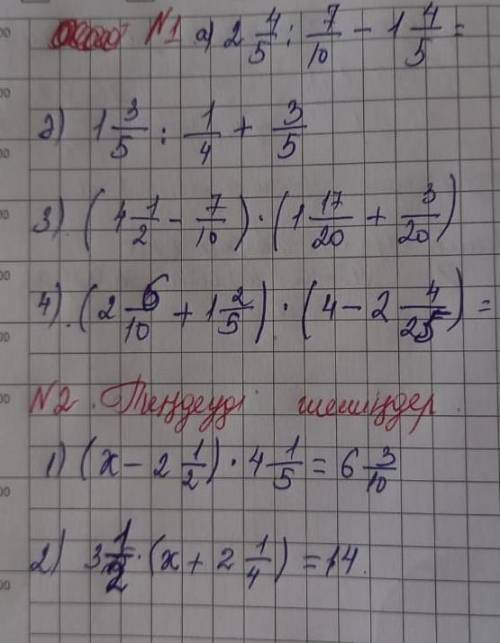 №1 а) 2 4/5 : 7/10 − 1 4/5 =
2) 1 3/5 : 1/4 + 3/5
3). (4 1/2 − 7/10) · (1 17/20 + 3/20)
4). (2 6/10 + 1 2/5) · (4 − 2 4/25) =
№2. Теңдеуді шешіңдер.
1) (x − 2 1/2) · 4 1/5 = 6 3/10
2) 3 1/2 · (x + 2 1/4) = 14.